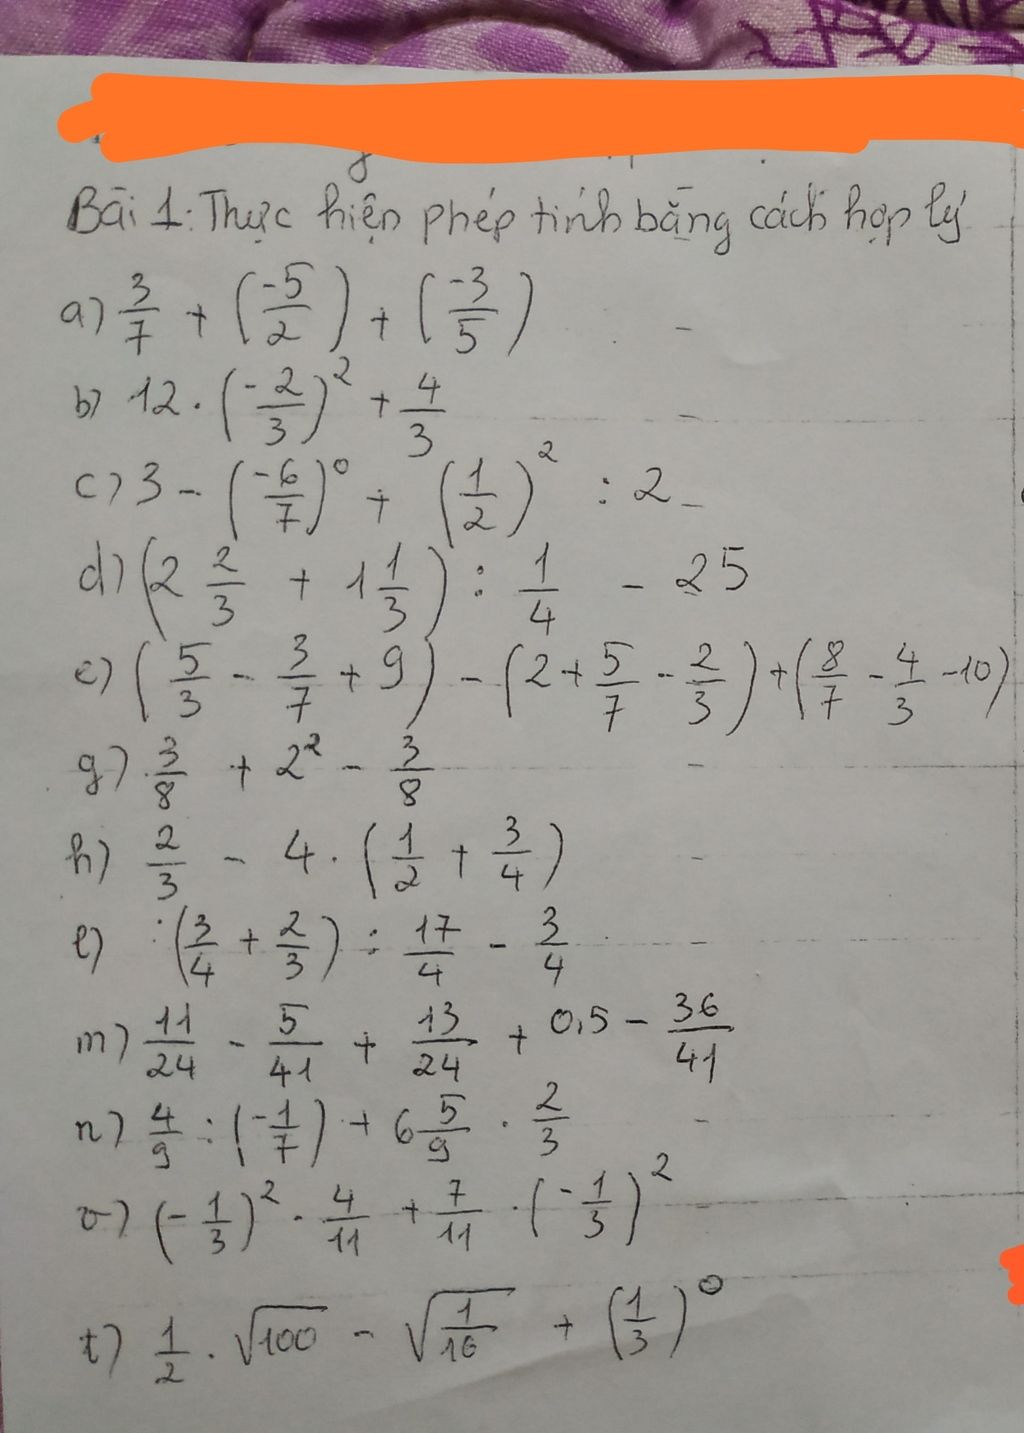 Bài 1: Thực hiện phép tính bằng cách hợp lý
a) 3/7 + (-5/2) + (-3/5)
b) 12 . (-2/3)² + 4/3
c) 3 - (-6/7)⁰ + (1/2)² : 2
d) (2 2/3 + 1 1/3) : 1/4 - 25
e) (5/3 - 3/7 + 9) - (2 + 5/7 - 2/3) + (8/7 - 4/3 - 10)
g) 3/8 + 2² - 3/8
h) 2/3 - 4 . (1/2 + 3/4)
l) (3/4 + 2/3) : 17/4 - 3/4
m) 11/24 - 5/41 + 13/24 + 0,5 - 36/41
n) 4/9 : (-1/7) + 6 5/9 . 2/3
o) (-1/3)² . 4/11 + 7/11 . (-1/3)²
t) 1/2 . √100 - √(1/16) + (1/3)⁰